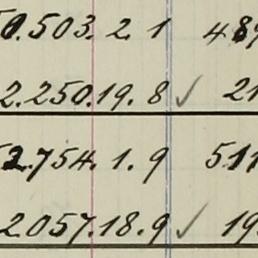 0.503.2.1 489
2.250.19.8✓ 21
2.754.1.9 511
2057.18.9✓ 19